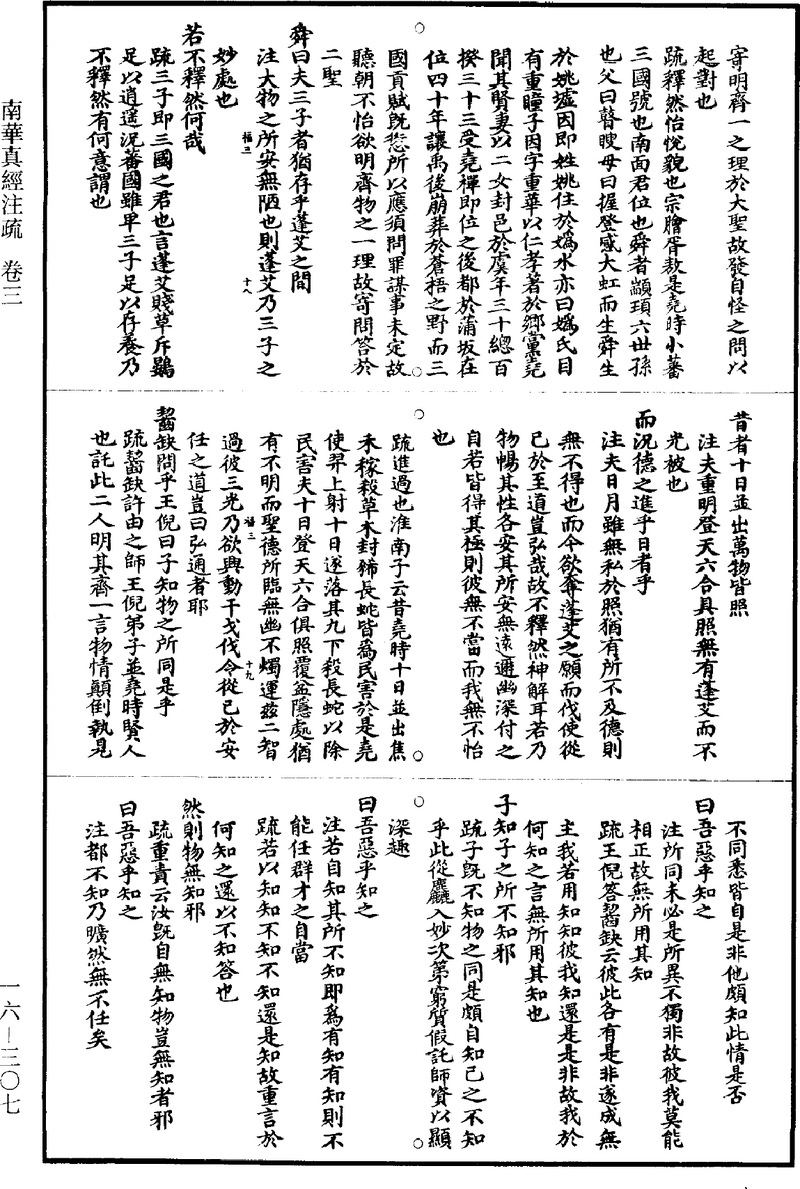 寄明齊一之理於大聖故發自怪之問以
起對也
疏釋然怡悅貌也宗膾胥敖是堯時小蕃
三國號也南面君位也舜者顓頊六世孫
也父曰瞽瞍母曰握登感大虹而生舜生
於姚墟因即姓姚住於媯水亦曰媯氏目
有重瞳子因字重華以仁孝著於鄉黨堯
聞其賢妻以二女封邑於虞年三十總百
揆三十三受堯禪即位之後都於蒲坂在
位四十年讓禹後崩葬於蒼梧之野而三
國貢賦旣愆所以應須問罪謀事未定故
聽朝不怡欲明齊物之一理故寄問答於
二聖
舜曰夫三子者猶存乎蓬艾之間
注大物之所安無陋也則蓬艾乃三子之
妙處也
若不釋然何哉
疏三子即三國之君也言蓬艾賤草斥鷃
足以逍遥況蕃國雖卑三子足以存養乃
不釋然有何意謂也
福三
十八
昔者十日並出萬物皆照
注夫重明登天六合具照無有蓬艾而不
光被也
而況德之進乎日者乎
注夫日月雖無私於照猶有所不及德則
無不得也而今欲奪蓬艾之願而伐使從
己於至道豈弘哉故不釋然神解耳若乃
物暢其性各安其所安無遠邇幽深付之
自若皆得其極則彼無不當而我無不怡
也
疏進過也淮南子云昔堯時十日並出焦
禾稼殺草木封狶長蛇皆爲民害於是堯
使羿上射十日遂落其九下殺長蛇以除
民害夫十日登天六合俱照覆盆隱處猶
有不明而聖德所臨無幽不燭運茲二智
過彼三光乃欲興動干戈伐令從己於安
任之道豈曰弘通者耶
齧缺問乎王倪曰子知物之所同是乎
疏齧缺許由之師王倪弟子並堯時賢人
也託此二人明其齊一言物情顛倒執見
福三
十九
不同悉皆自是非他頗知此情是否
曰吾惡乎知之
注所同未必是所異不獨非故彼我莫能
相正故無所用其知
疏王倪答齧缺云彼此各有是非遂成無
主我若用知知彼我知還是是非故我於
何知之言無所用其知也
子知子之所不知邪
疏子旣不知物之同是頗自知己之不知
乎此從麤入妙次第窮質假託師資以顯
深趣
曰吾惡乎知之
注若自知其所不知即爲有知有知則不
能任群才之自當
疏若以知知不知不知還是知故重言於
何知之還以不知答也
然則物無知邪
疏重責云汝旣自無知物豈無知者邪
曰吾惡乎知之
注都不知乃曠然無不任矣
南華真經注疏　卷三
一六—三〇七